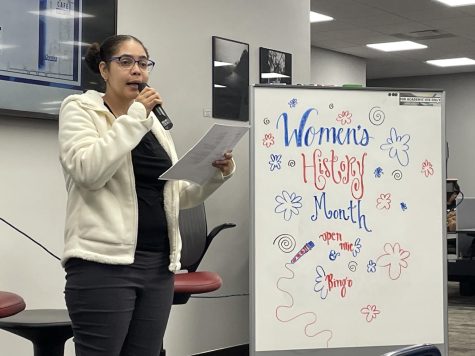 Women's
History
Month
open mic
&
Bingo